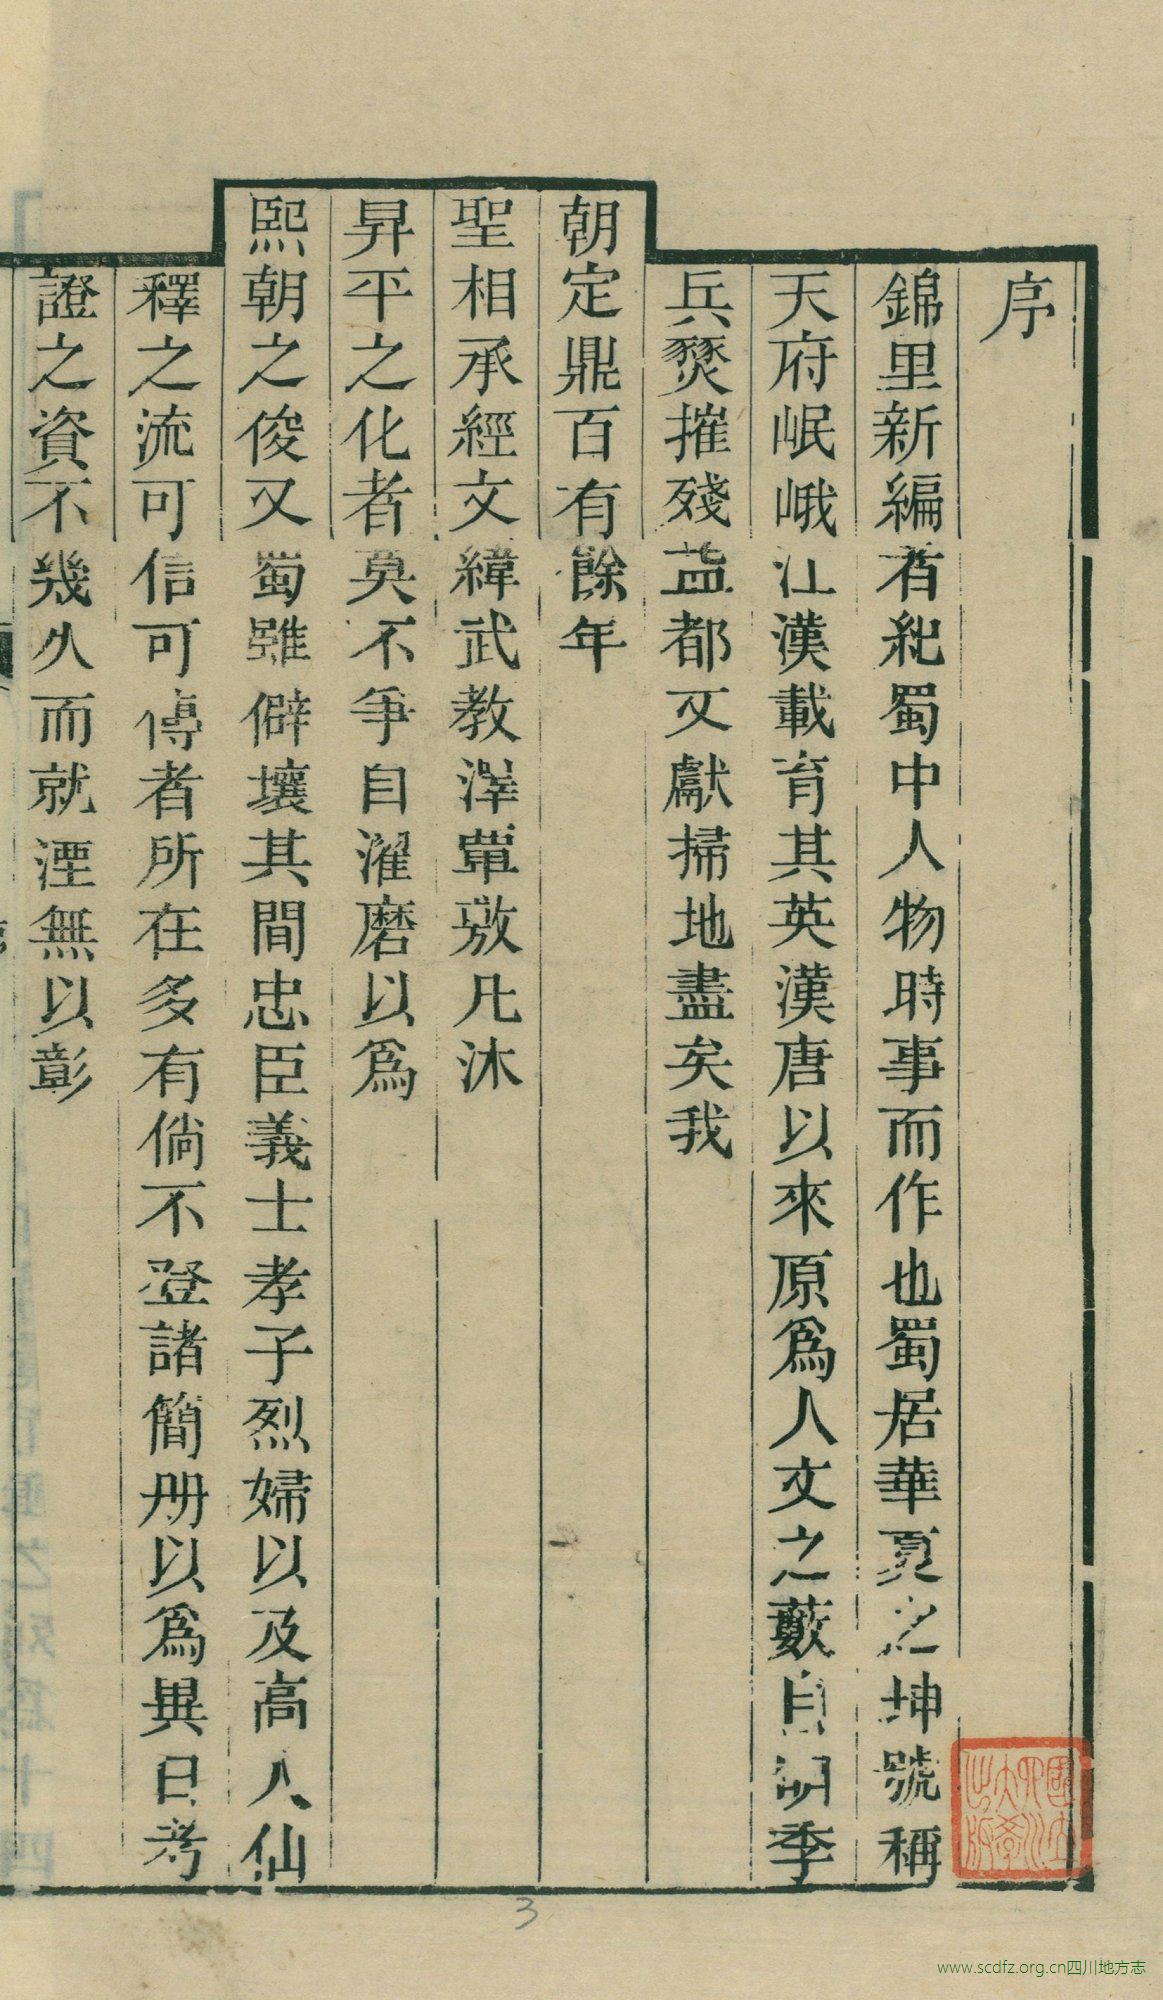 序
錦里新編者紀蜀中人物時事而作也蜀居華夏之坤號稱
天府岷峨江漢載育其英漢唐以來原爲人文之藪自明季
兵燹摧殘益都文獻掃地盡矣我
朝定鼎百有餘年
聖相承經文緯武教澤覃敷凡沐
昇平之化者莫不爭自濯磨以爲
熙朝之俊又蜀雖僻壤其間忠臣義士孝子烈婦以及高人仙
釋之流可信可傳者所在多有倘不登諸簡册以爲異日考
證之資不幾久而就湮無以彰
國立四川大學圖書館
3
www.scdfz.org.cn四川地方志